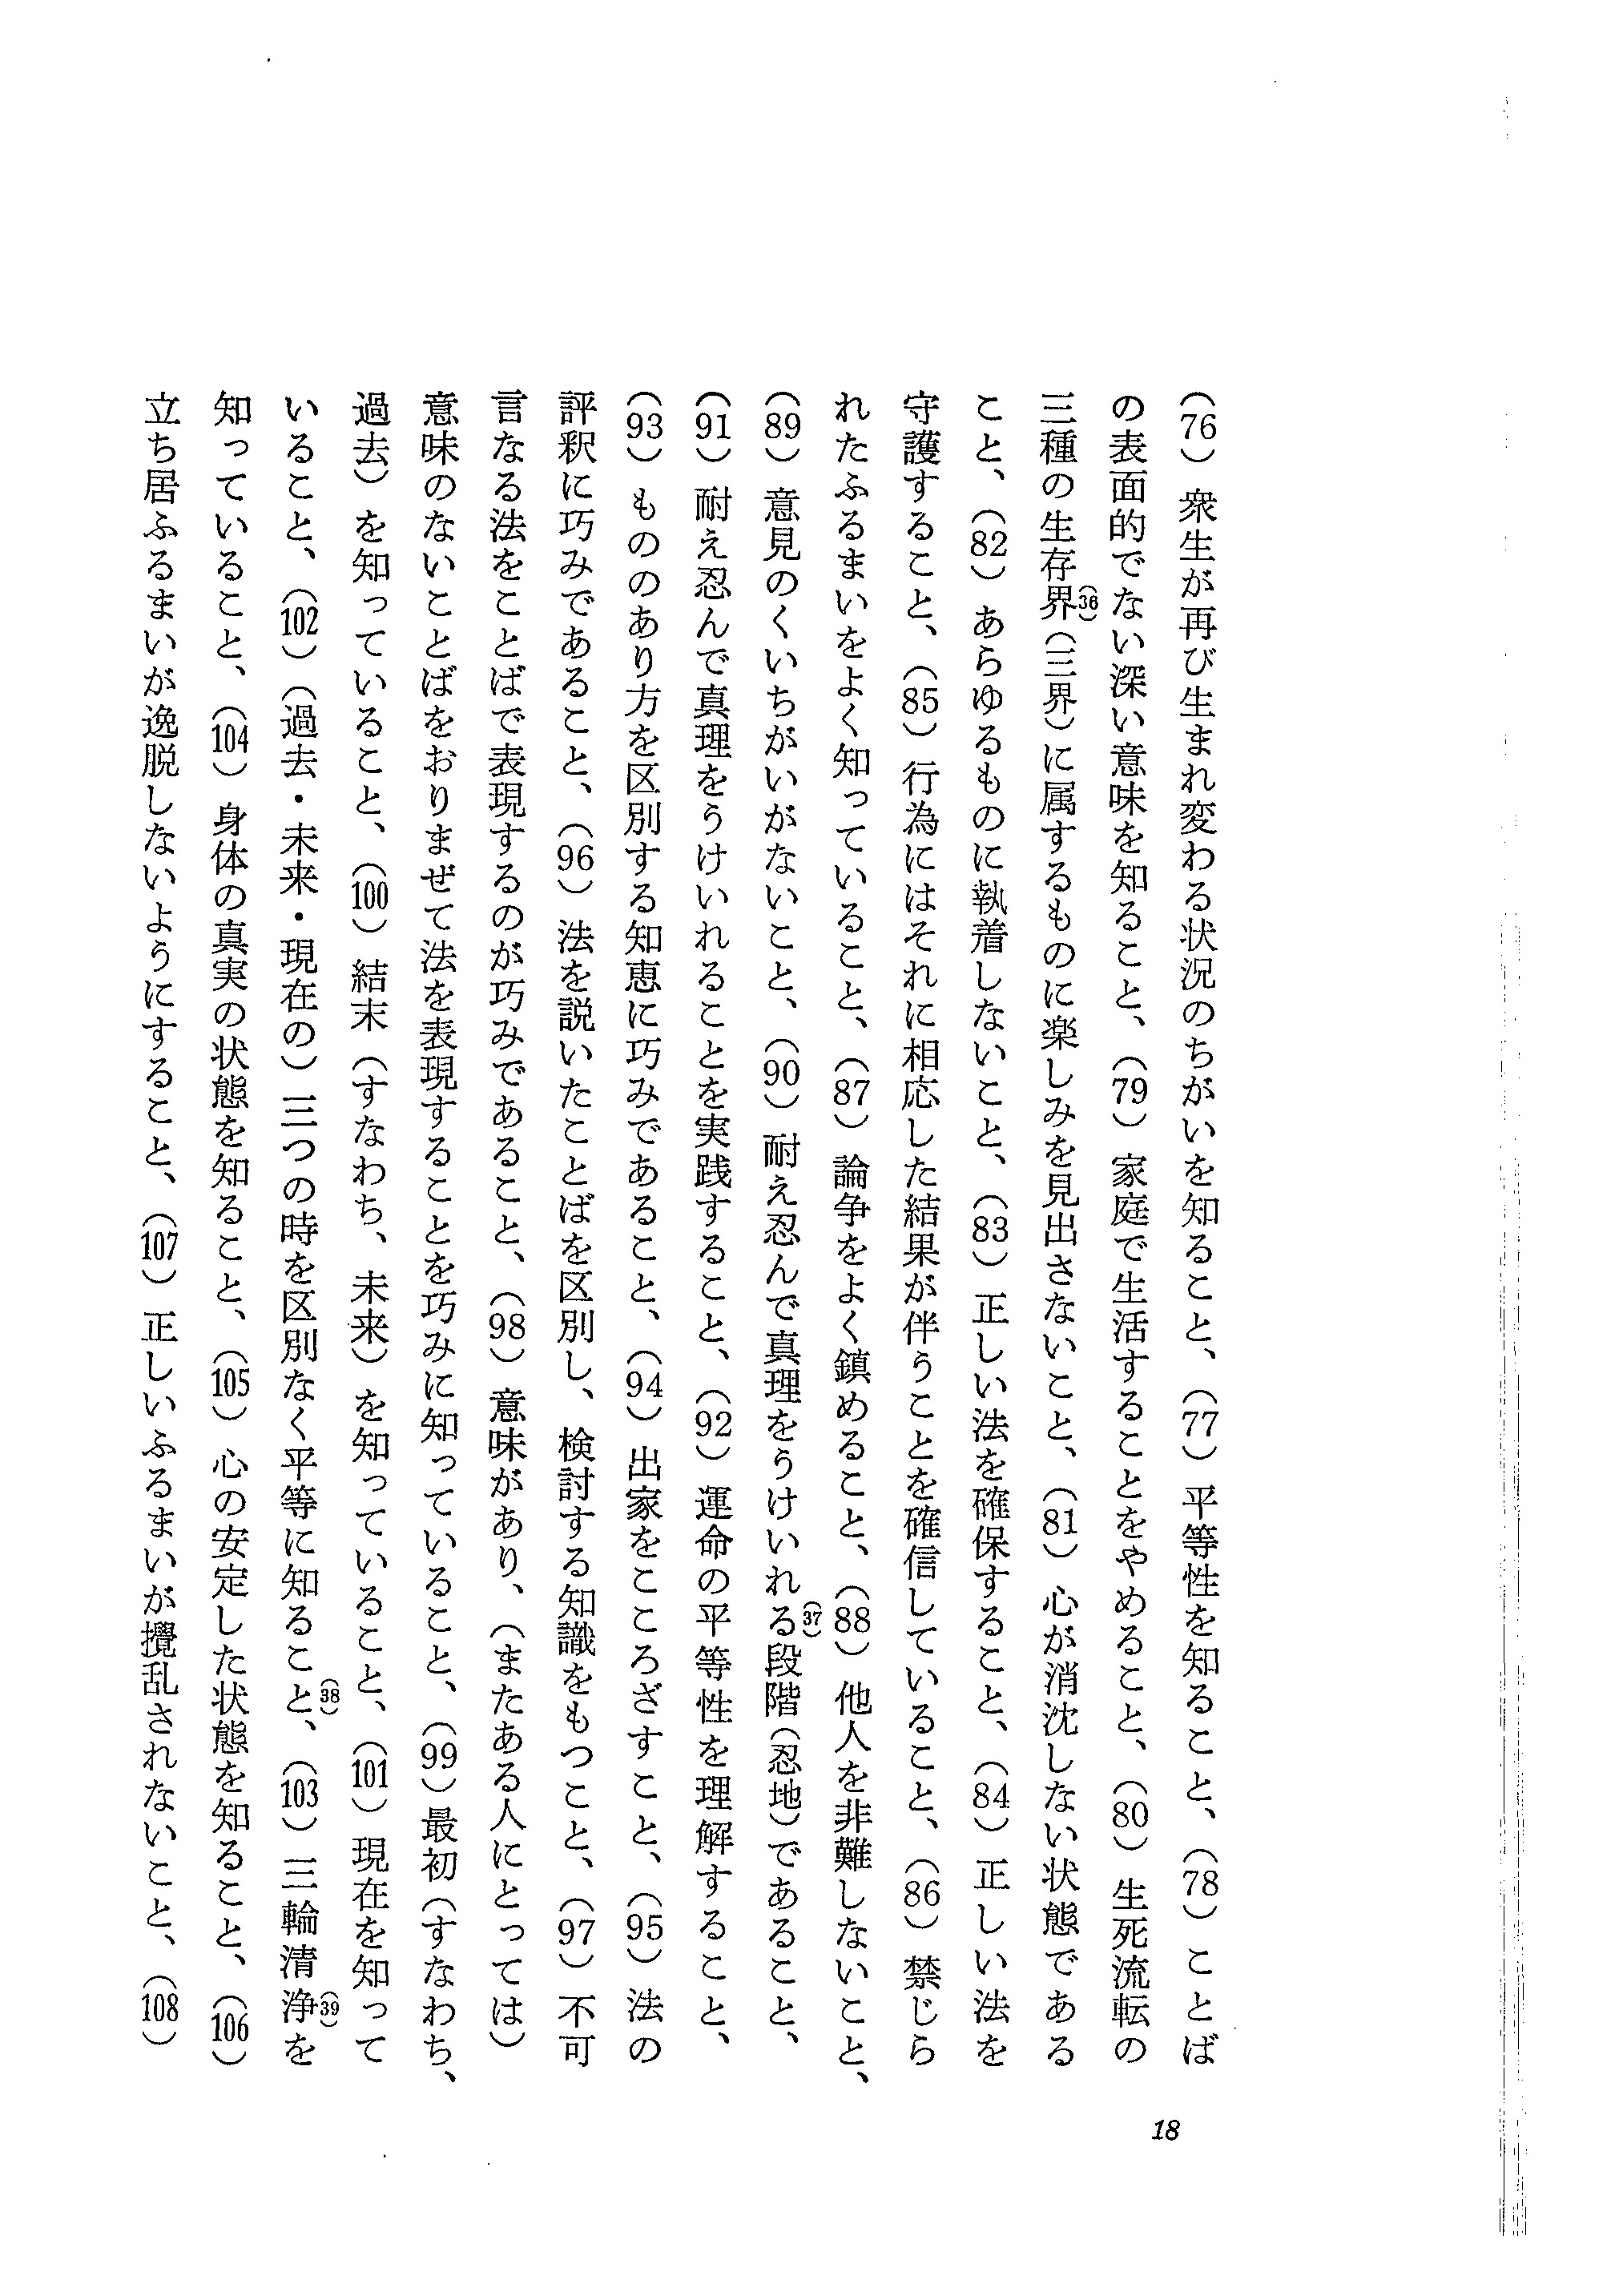 （76）衆生が再び生まれ変わる状況のちがいを知ること、（77）平等性を知ること、（78）ことば
の表面的でない深い意味を知ること、（79）家庭で生活することをやめること、（80）生死流転の
三種の生存界（36）（三界）に属するものに楽しみを見出さないこと、（81）心が消沈しない状態である
こと、（82）あらゆるものに執着しないこと、（83）正しい法を確保すること、（84）正しい法を
守護すること、（85）行為にはそれに相応した結果が伴うことを確信していること、（86）禁じら
れたふるまいをよく知っていること、（87）論争をよく鎮めること、（88）他人を非難しないこと、
（89）意見のくいちがいがないこと、（90）耐え忍んで真理をうけいれる（37）段階（忍地）であること、
（91）耐え忍んで真理をうけいれることを実践すること、（92）運命の平等性を理解すること、
（93）もののあり方を区別する知恵に巧みであること、（94）出家をこころざすこと、（95）法の
評釈に巧みであること、（96）法を説いたことばを区別し、検討する知識をもつこと、（97）不可
言なる法をことばで表現するのが巧みであること、（98）意味があり、（またある人にとっては）
意味のないことばをおりまぜて法を表現することを巧みに知っていること、（99）最初（すなわち、
過去）を知っていること、（100）結末（すなわち、未来）を知っていること、（101）現在を知って
いること、（102）（過去・未来・現在の）三つの時を区別なく平等に知ること（38）、（103）三輪清浄（39）を
知っていること、（104）身体の真実の状態を知ること、（105）心の安定した状態を知ること、（106）
立ち居ふるまいが逸脱しないようにすること、（107）正しいふるまいが攪乱されないこと、（108）
18